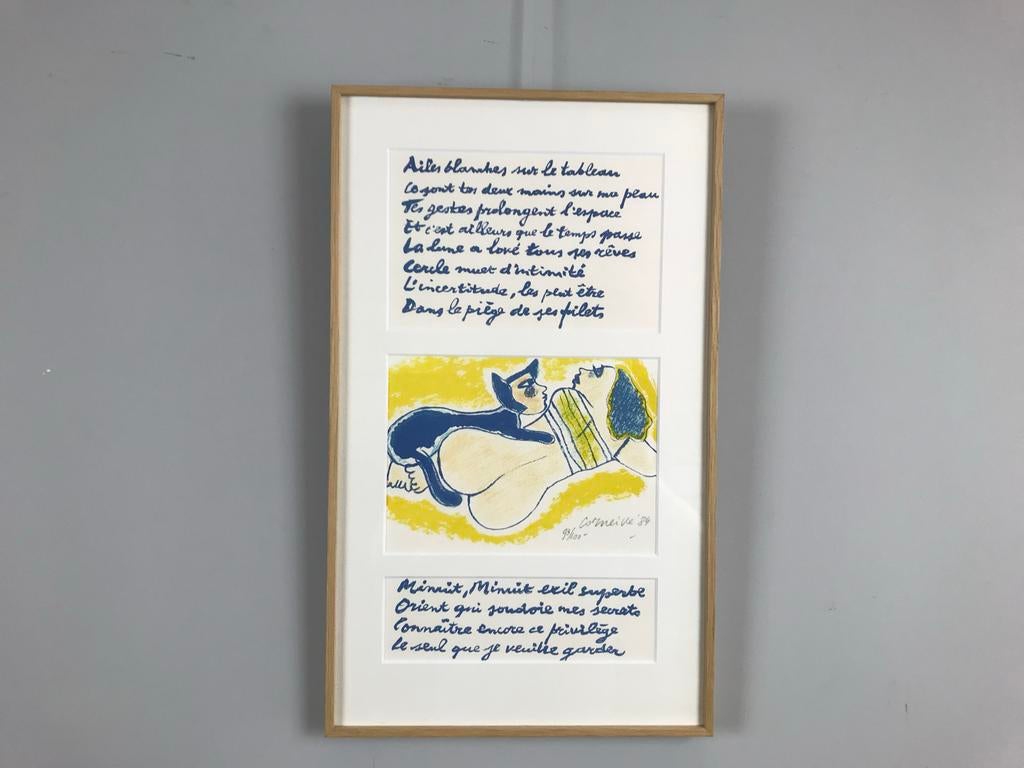 Ailes blanches sur le tableau
Ce sont tes deux mains sur ma peau
Tes gestes prolongent l'espace
Et c'est ailleurs que le temps passe
La lune a lové tous ses rêves
Cercle muet d'intimité
L'incertitude, les peut être
Dans le piège de ses filets
Corneille '84
99/100-
Minuit, Minuit exil superbe
Orient qui soudoie mes secrets
Connaître encore ce privilège
Le seul que je veuille garder